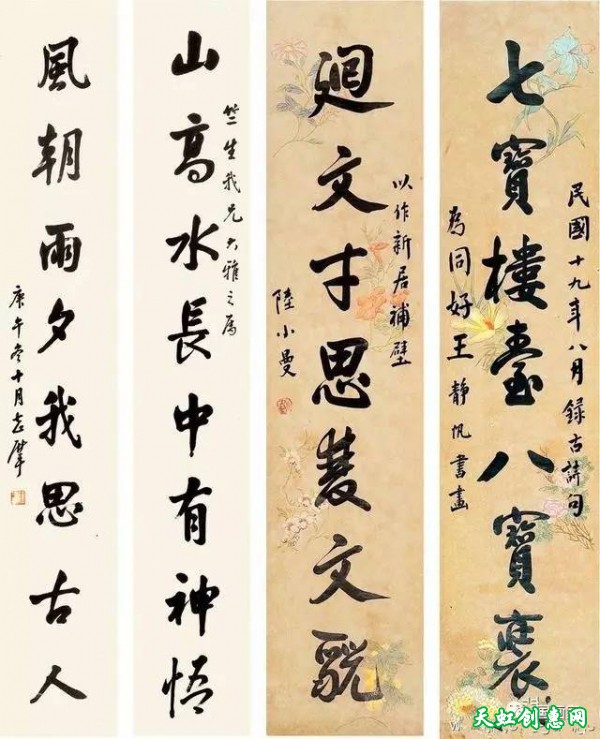 民國十九年八月錄古詩句
七寶樓臺八寶
為同好王靜帆書畫
以作新居補壁
廻文才思文
陸小曼
竺生我兄大雅之屬
山高水長中有神悟
風朝雨夕我思古人
庚午冬十月志摩
天虹创惠网